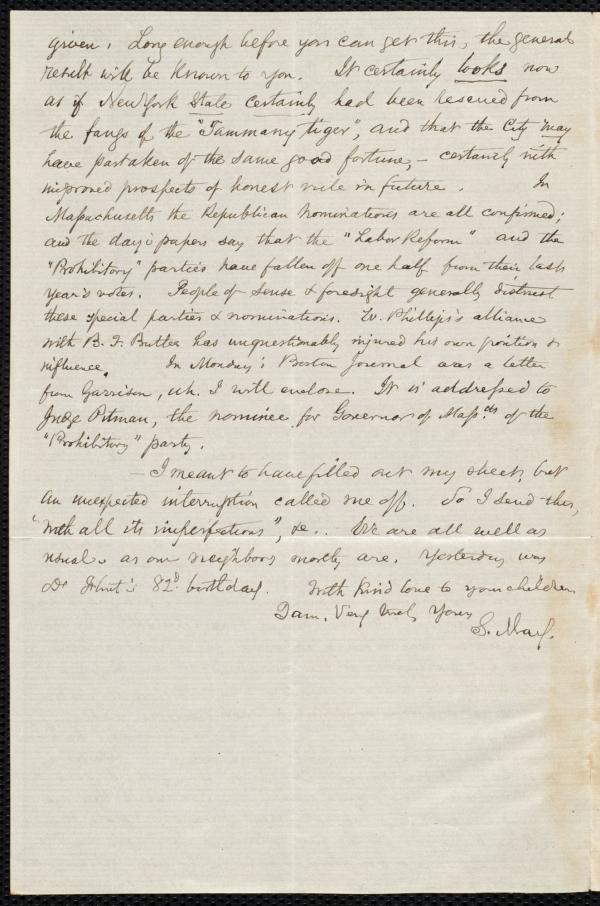 given. Long enough before you can get this, the general
result will be known to you. It certainly looks now
as if New York State certainly had been rescued from
the fangs of the "Tammany tiger", and that the City may
have partaken of the same good fortune, – certainly with
improved prospects of honest rule in future. In
Massachusetts the Republican nominations are all confirmed;
and the day's papers say that the "Labor Reform" and the
"Prohibitory" parties have fallen off one half from their last
year's votes. People of sense & foresight generally distrust
these special parties & nominations. W. Phillips's alliance
with B. F. Butler has unquestionably injured his own position &
influence. In Monday's Boston Journal was a letter
from Garrison, wh. I will enclose. It is addressed to
Judge Pitman, the nominee for Governor of Mass.tts of the
"Prohibitory" party.
— I meant to have filled out my sheet, but
an unexpected interruption called me off. So I send this,
"with all its imperfections", &c.. We are all well as
usual, as our neighbors mostly are. Yesterday was
Dr 82d. birthday. With kind love to your children
I am, Very truly Yours
S. May.